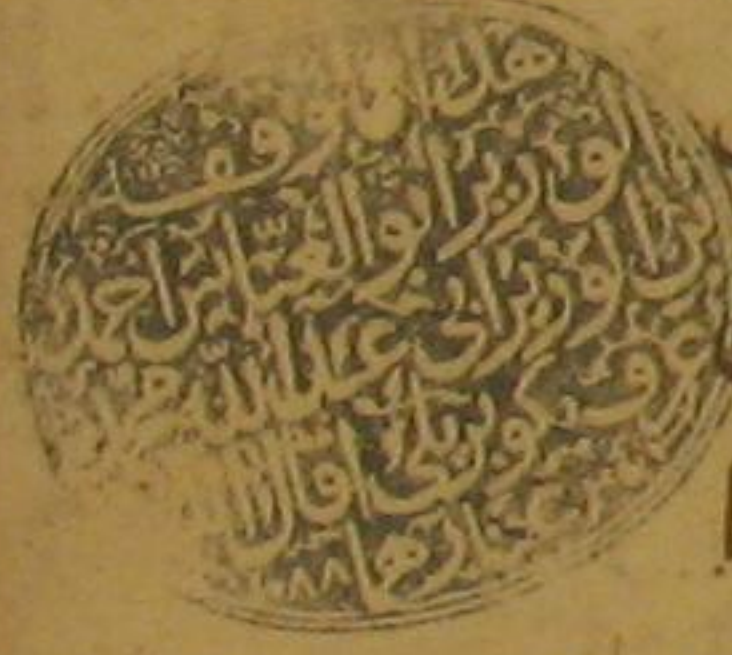 هذا ما وقف
الوزير ابو العباس احمد
بن الوزير ابي عبد الله محمد
عرف بكوبريلي اقال الله
عثارها
١٠٨٨